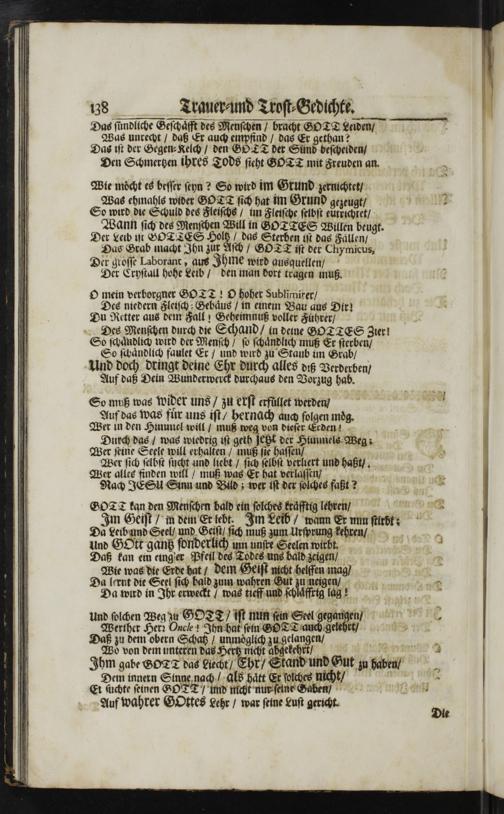 138 Trauer-und Trost-Gedichte.
Das sündliche Geschäfft des Menschen / bracht GOTT Leiden/
Was unrecht / daß Er auch empfind / das Er gethan?
Das ist der Gegen-Kelch / den GOTT der Sünd bescheiden/
Den Schmertzen ihres Tods sieht GOTT mit Freuden an.
Wie möcht es besser seyn? So wird im Grund zernichtet/
Was ehmahls wider GOTT sich hat im Grund gezeugt/
So wird die Schuld des Fleischs / im Fleische selbst entrichtet/
Wann sich des Menschen Will in GOTTES Willen beugt.
Der Leib ist GOTTES Holtz / das Sterben ist das Fällen/
Das Grab macht Ihn zur Asch / GOTT ist der Chymicus,
Der grosse Laborant, aus Ihme wird ausquellen/
Der Crystall hohe Leib / den man dort tragen muß.
O mein verborgner GOTT! O hoher Sublimirer/
Des niedern Fleisch-Gebäus / in einem Bau aus Dir!
Du Retter aus dem Fall / Geheimnuß voller Führer/
Des Menschen durch die Schand / in deine GOTTES Zier!
So schändlich wird der Mensch / so schändlich muß Er sterben/
So schändlich faulet Er / und wird zu Staub im Grab/
Und doch dringt deine Ehr durch alles diß Verderben/
Auf daß Dein Wunderwerck durchaus den Vorzug hab.
So muß was wider uns / zu erst erfüllet werden/
Auf das was für uns ist / hernach auch folgen mög.
Wer in den Himmel will / muß weg von dieser Erden!
Durch das / was wiedrig ist geth jetzt der Himmels-Weg;
Wer seine Seele will erhalten / muß sie hassen/
Wer sich selbst sucht und liebt / sich selbst verliert und haßt/.
Wer alles finden will / muß was Er hat verlassen/
Nach JESU Sinn und Bild; wer ist der solches faßt?
GOTT kan den Menschen bald ein solches kräfftig lehren/
Im Geist / in dein Er lebt. Im Leib / wann Er nun stirbt;
Da Leib und Seel/ und Geist/ sich muß zum Ursprung kehren/
Und GOtt gantz sonderlich um unsre Seelen wirbt.
Daß kan ein einger Pfeil des Todes uns bald zeigen/
Wie was die Erde hat / dem Geist nicht helffen mag/
Da lernt die Seel sich bald zum wahren Gut zu neigen/
Da wird in Ihr erweckt / was tieff und schläffrig lag!
Und solchen Weg zu GOTT / ist nun sein Seel gegangen/
Werther Herr Oncle! Ihn hat sein GOTT auch gelehrt/
Daß zu dem obern Schatz / unmöglich zu gelangen/
Wo von dem unteren das Hertz nicht abgekehrt/
Ihm gabe GOTT das Liecht / Ehr / Stand und Gut zu haben/
Dem innern Sinne nach / als hätt Er solches nicht/
Er suchte seinen GOTT / und nicht nur seine Gaben/
Auf wahrer GOttes Lehr / war seine Lust gericht.
Die